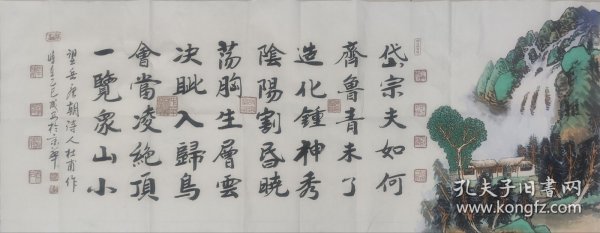 岱宗夫如何
齊魯青未了
造化鍾神秀
陰陽割昏曉
蕩胸生層雲
决眦入歸鳥
會當凌絶頂
一覽衆山小
望岳唐朝诗人杜甫作
孔夫子旧书网
www.kongfz.com